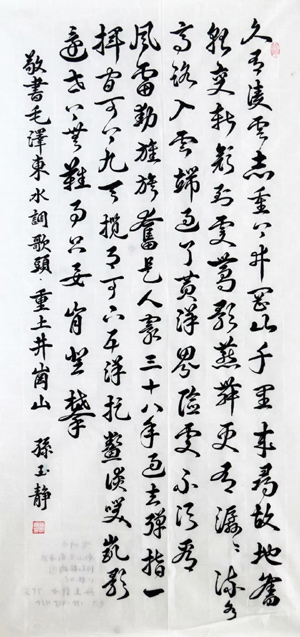 久有凌雲志重上井岡山千里来尋故地舊
貌变新颜到處鶯歌燕舞更有潺潺流水
高路入雲端過了黄洋界险處不須看
風雷動旌旗奮是人寰三十八年過去弹指一
揮间可上九天揽月可下五洋捉鳖谈笑凱歌
還世上無難事只要肯登攀
敬書毛澤東水詞歌頭·重上井崗山 孫玉静